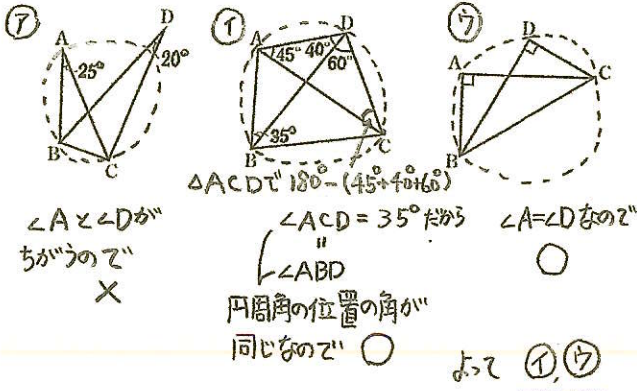 ア
A
D
25°
20°
B
C
∠Aと∠Dが
ちがうので
×
イ
A
D
45° 40°
60°
35°
B
C
△ACDで 180°-(45°+40°+60°)
∠ACD = 35°だから
〃
∠ABD
円周角の位置の角が
同じなので ○
ウ
D
A
C
B
∠A=∠Dなので
○
よって イ,ウ